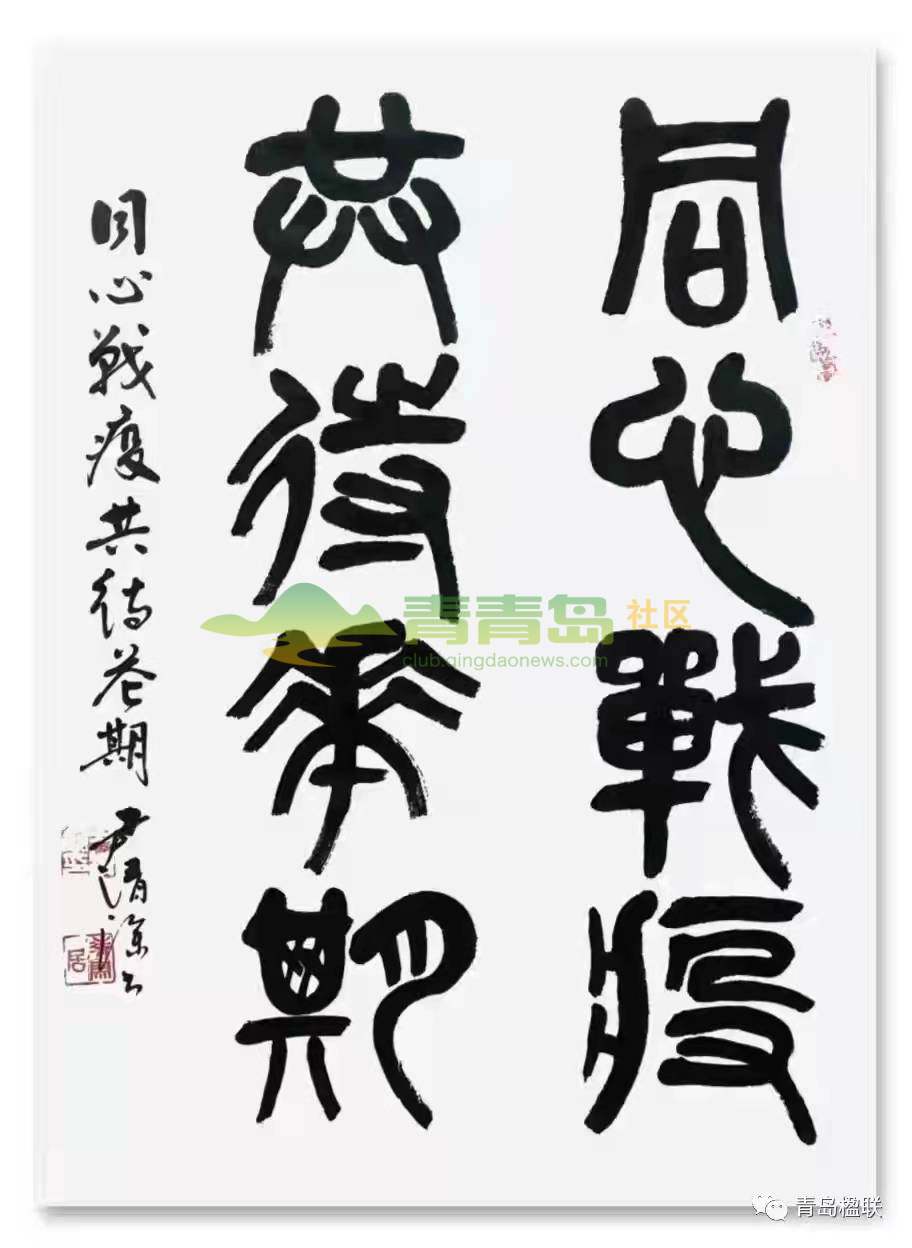 同心戰疫
共待華期
同心戰疫共待花期
青青岛社区
club.qingdaonews.com
青岛楹联